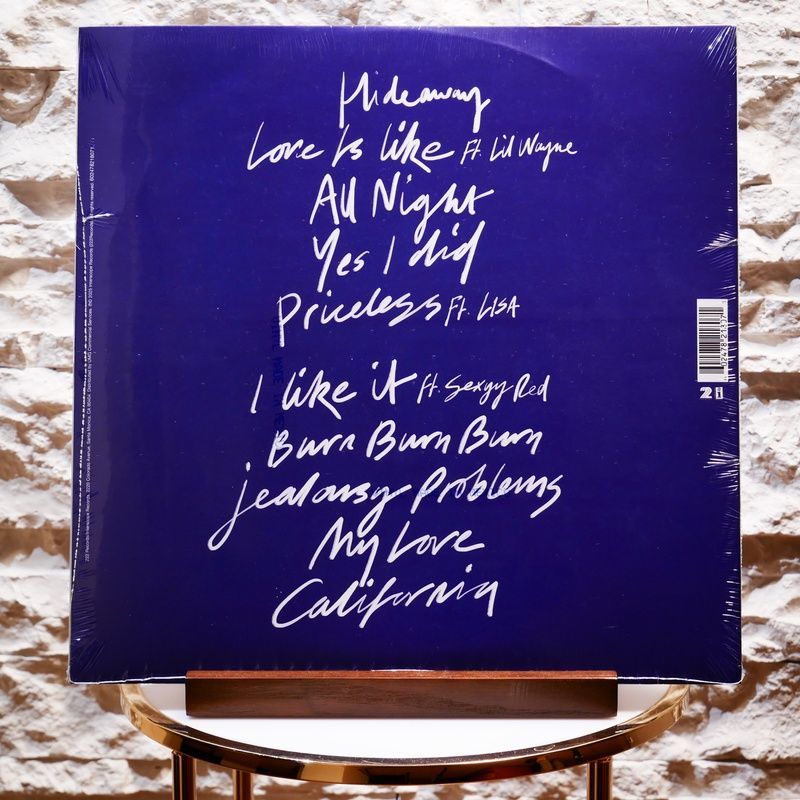 Hideaway
Love Is like Ft. Lil Wayne
All Night
Yes I did
Priceless Ft. LISA
I like it ft. Sexyy Red
Burn Burn Burn
jealousy problems
My Love
California
2